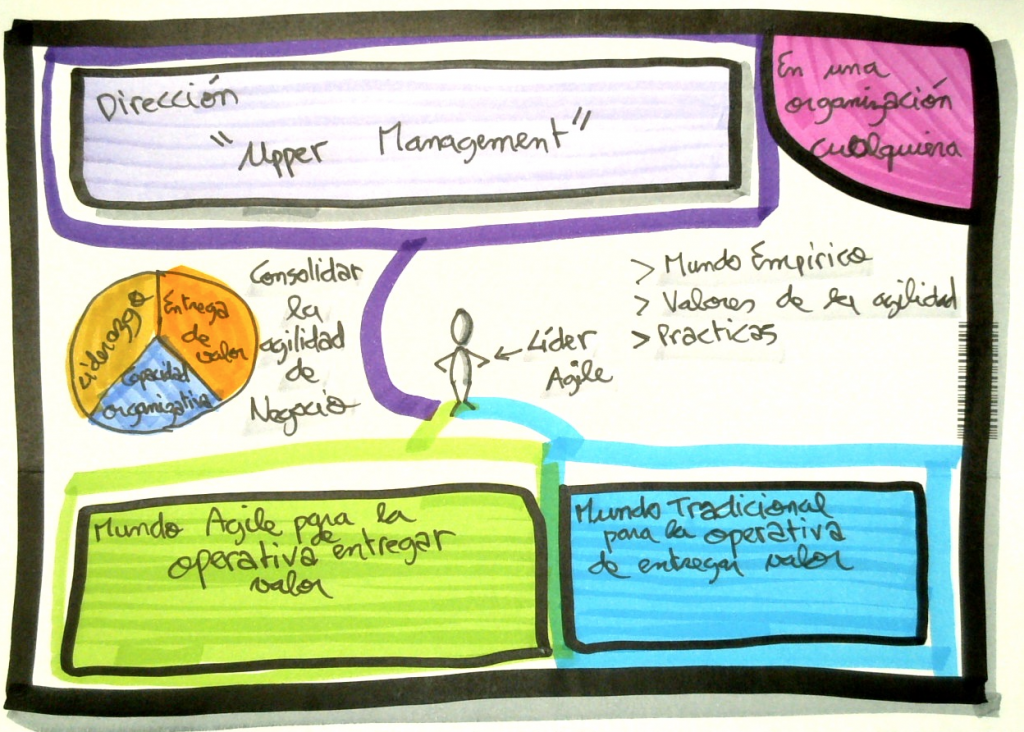 Dirección
"Upper Management"
En una
organización
cualquiera
Consolidar
la
agilidad
de
Negocio
Liderazgo
Entrega
de
valor
Capacidad
organizativa
Líder
Agile
> Mundo Empírico
> Valores de la agilidad
> Practicas
Mundo Agile para la
operativa de entregar
valor
Mundo Tradicional
para la operativa
de entregar valor